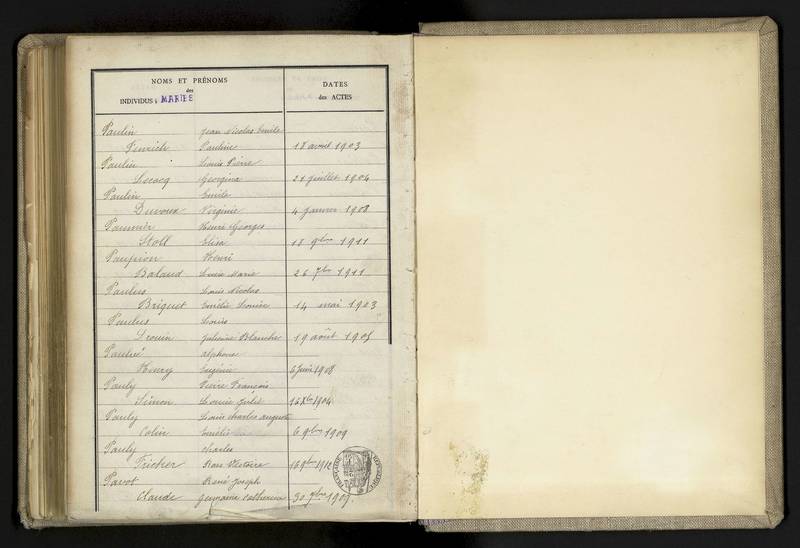 NOMS ET PRÉNOMS DATES
des
INDIVIDUS MARIÉS des ACTES
Paulin Jean Nicolas Emile
Fenrich Pauline 18 avril 1903
Paulin Louis Pierre
Lecocq Georgina 21 juillet 1904
Paulin Emile
Duvoux Virginie 4 janvier 1908
Paumier Henri Georges
Stoll Elisa 18 9bre 1911
Paupion Henri
Balaud Marie 26 7bre 1911
Paulus Louis Nicolas
Briquet Emélie Louise 14 mai 1903
Paulus Louis
Drouin Julienne Blanche 19 août 1905
Paulré Alphonse
Henry Eugénie 6 juin 1908
Pauly Pierre François
Simon Louise 16 Xbre 1904
Pauly Louis Charles Auguste
Colin Emélie 6 9bre 1909
Pauly Charles
Tricher 16 9bre 1912
Pavot René Joseph
Claude Germaine Catherine 30 9bre 1907